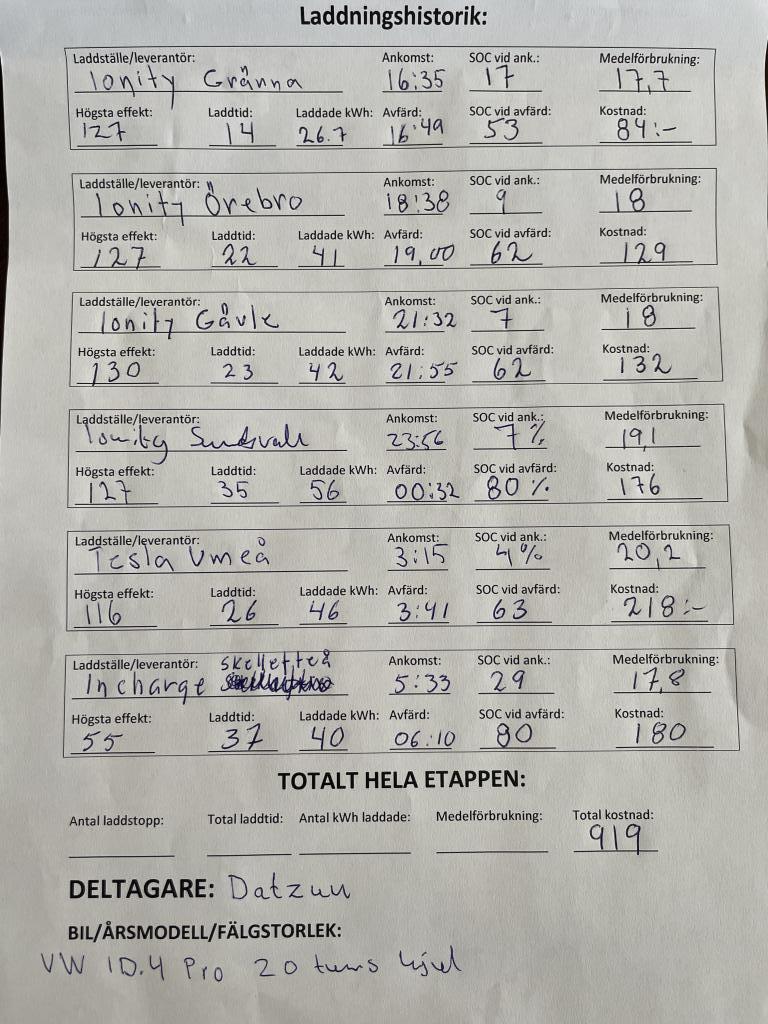 Laddningshistorik:
Laddställe/leverantör: Ankomst: SOC vid ank.: Medelförbrukning:
Ionity Gränna 16:35 17 17,7
Högsta effekt: Laddtid: Laddade kWh: Avfärd: SOC vid avfärd: Kostnad:
127 14 26.7 16:49 53 84:-
Laddställe/leverantör: Ankomst: SOC vid ank.: Medelförbrukning:
Ionity Örebro 18:38 9 18
Högsta effekt: Laddtid: Laddade kWh: Avfärd: SOC vid avfärd: Kostnad:
127 22 41 19,00 62 129
Laddställe/leverantör: Ankomst: SOC vid ank.: Medelförbrukning:
Ionity Gävle 21:32 7 18
Högsta effekt: Laddtid: Laddade kWh: Avfärd: SOC vid avfärd: Kostnad:
130 23 42 21:55 62 132
Laddställe/leverantör: Ankomst: SOC vid ank.: Medelförbrukning:
Ionity Sundsvall 23:56 7% 19,1
Högsta effekt: Laddtid: Laddade kWh: Avfärd: SOC vid avfärd: Kostnad:
127 35 56 00:32 80% 176
Laddställe/leverantör: Ankomst: SOC vid ank.: Medelförbrukning:
Tesla Umeå 3:15 4% 20,2
Högsta effekt: Laddtid: Laddade kWh: Avfärd: SOC vid avfärd: Kostnad:
116 26 46 3:41 63 218:-
Laddställe/leverantör: Skellefteå Ankomst: SOC vid ank.: Medelförbrukning:
Incharge 5:33 29 17,8
Högsta effekt: Laddtid: Laddade kWh: Avfärd: SOC vid avfärd: Kostnad:
55 37 40 06:10 80 180
TOTALT HELA ETAPPEN:
Antal laddstopp: Total laddtid: Antal kWh laddade: Medelförbrukning: Total kostnad:
919
DELTAGARE: Datzun
BIL/ÅRSMODELL/FÄLGSTORLEK:
VW ID.4 Pro 20 tums hjul